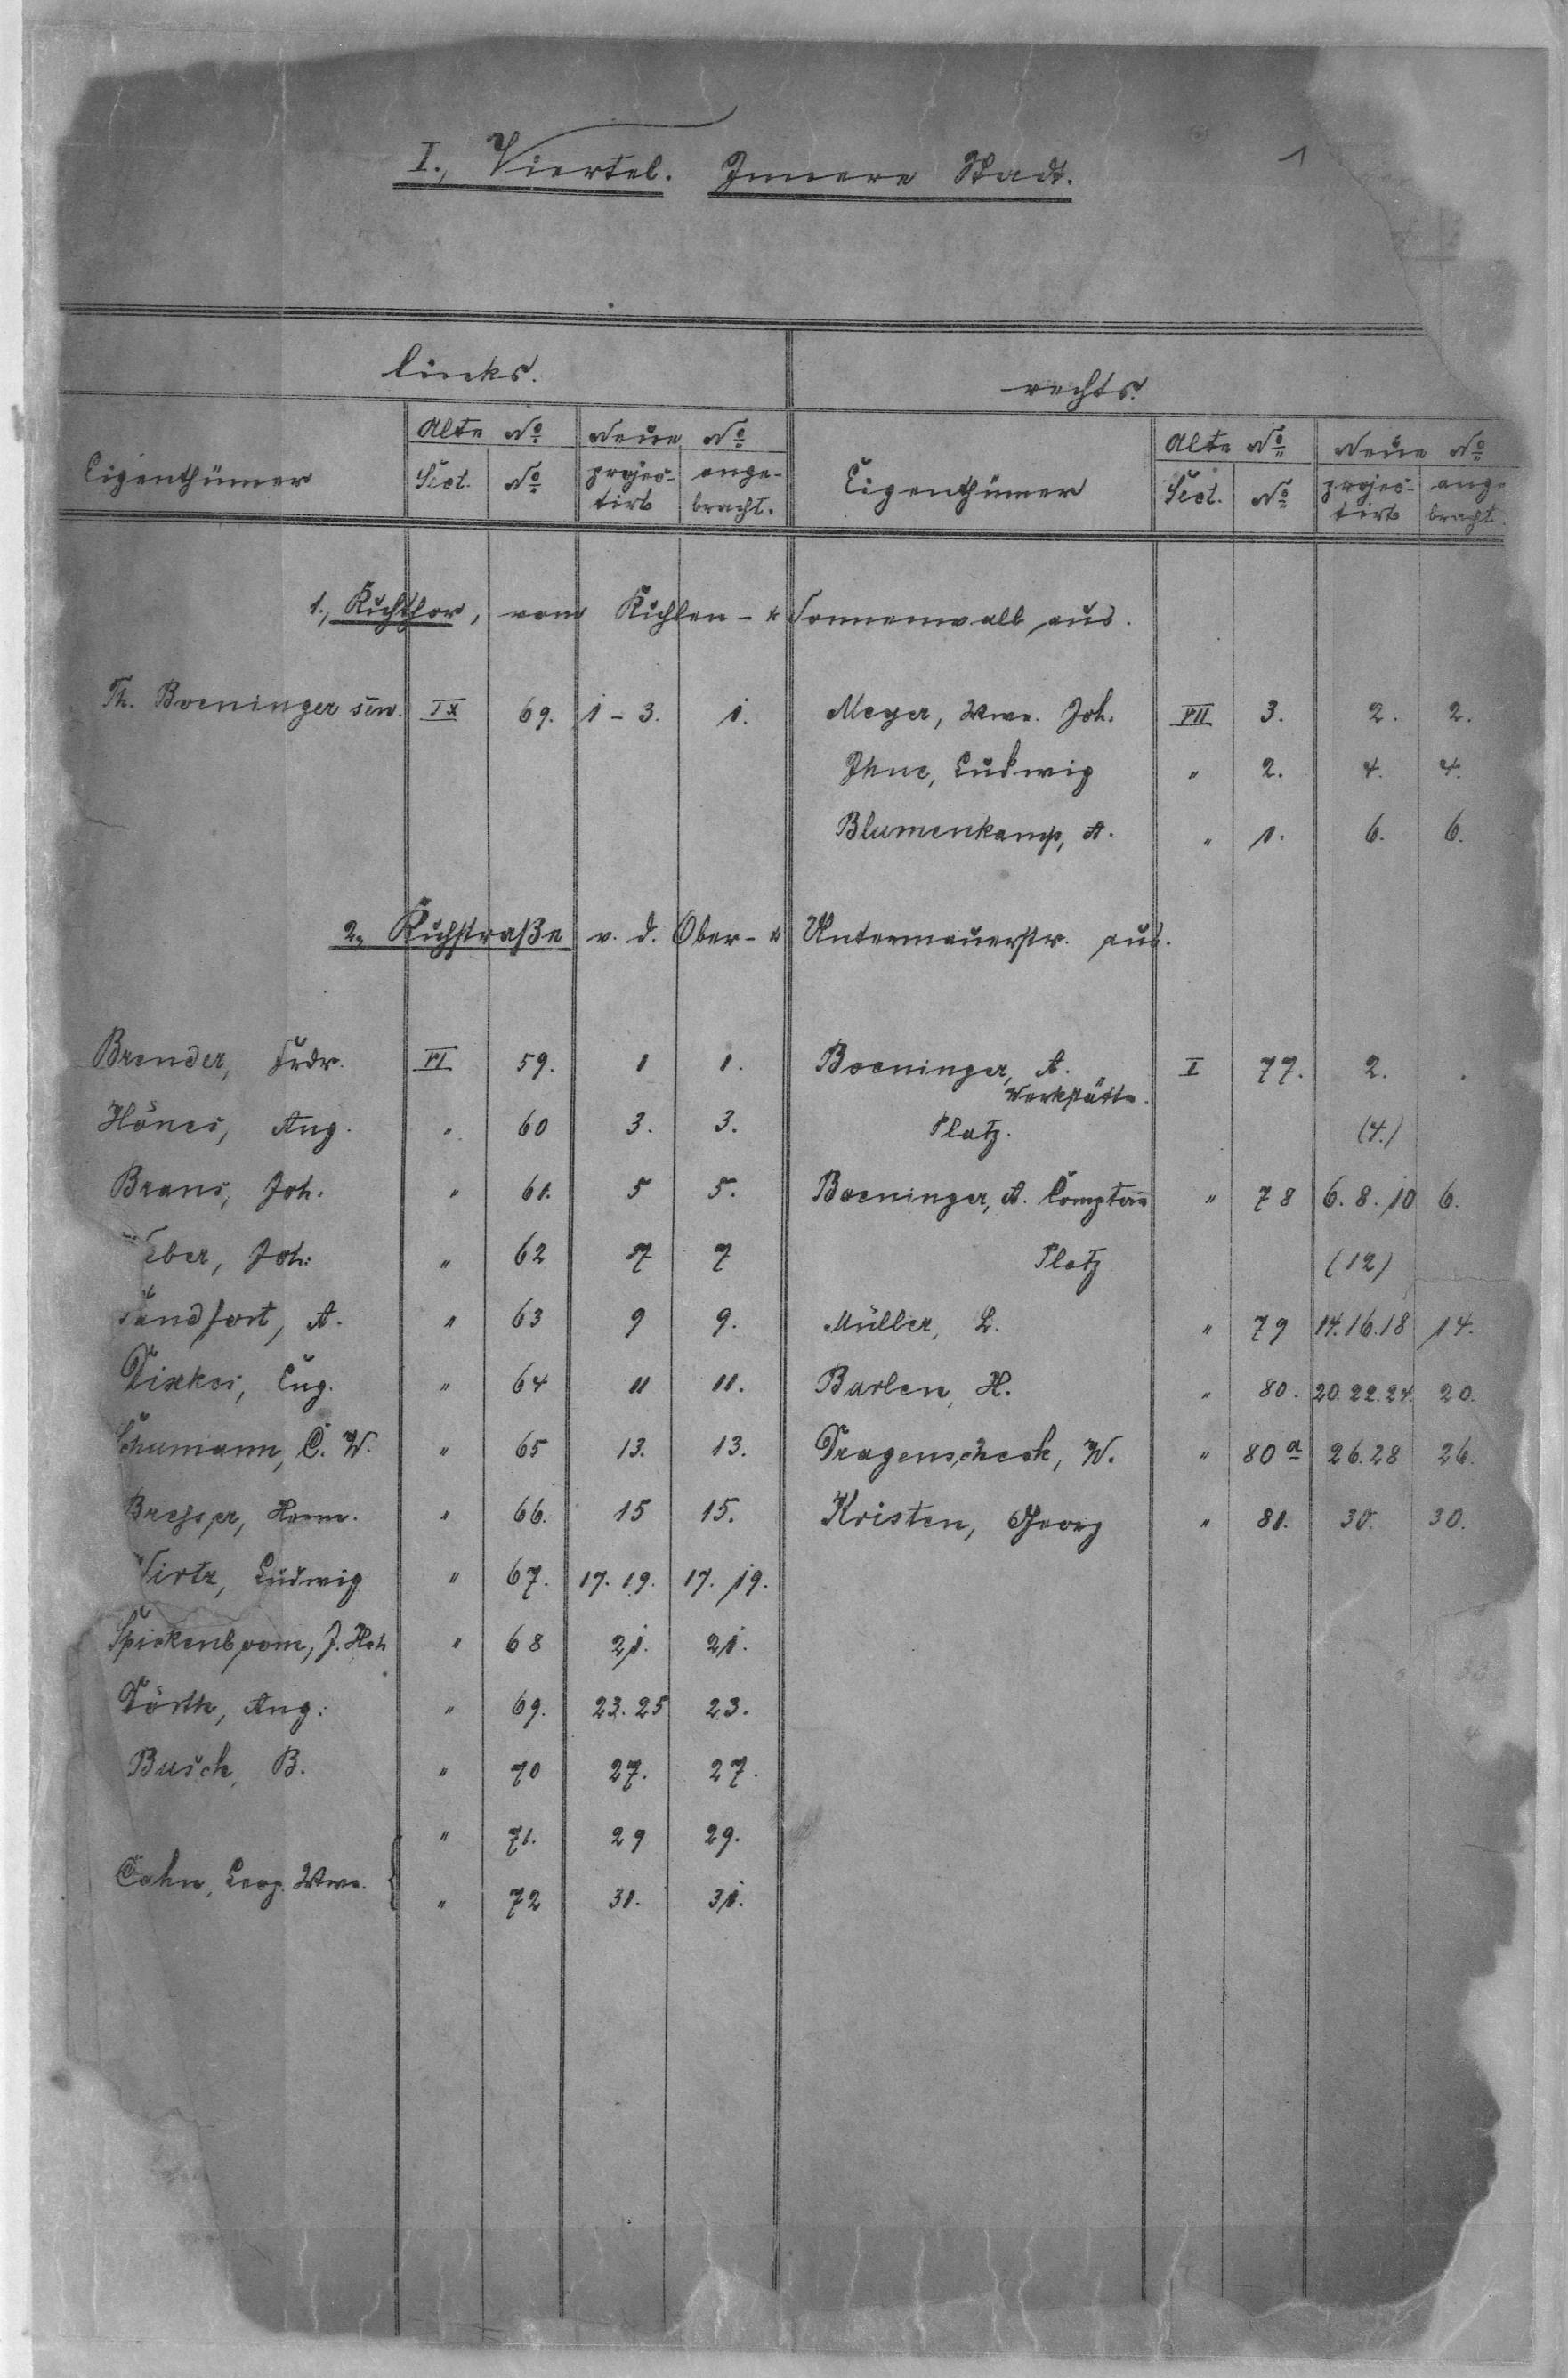 I., Viertel. Innere Stadt.
1
links.
rechts.
Eigenthümer Alte No Neue No Eigenthümer Alte No Neue No
Sect. No projec- ange- Sect. No projec- ange
tirt bracht. tirt bracht.
1., Kuhthor, vom Kuhlen- & Sonnenwall aus.
Th. Boeninger sen. IX 69. 1-3. 1. Meyer, Wwe. Joh. VII 3. 2. 2.
Ihne, Ludwig " 2. 4. 4.
Blumenkamp, A. " 1. 6. 6.
2., Kuhstraße v. d. Ober- & Untermauerstr. aus.
Brender, Frdr. VI 59. 1 1. Boeninger, A. I 77. 2.
Werkstätte.
Hönes, Aug. " 60 3. 3. Platz. (4.)
Brans, Joh. " 61. 5 5. Boeninger, A. Comptoir " 78 6. 8. 10 6.
eber, Joh. " 62 7 7 Platz (12)
Sandfort, A. " 63 9 9. Müller, L. " 79 14.16.18 14.
Dickes, Eug. " 64 11 11. Barlen, H. " 80. 20.22.24. 20.
Schumann, C. W. " 65 13. 13. Tragenscheck, W. " 80a 26.28 26.
Bresser, Herm. " 66. 15 15. Kristen, Georg " 81. 30. 30.
Wirtz, Ludwig " 67. 17. 19. 17. 19.
Spickenboom, J. Hch " 68 21. 21.
Dörth, Aug. " 69. 23. 25 23.
Busch, B. " 70 27. 27.
" 71. 29 29.
Cahn, Leop. Wwe. { " 72 31. 31.